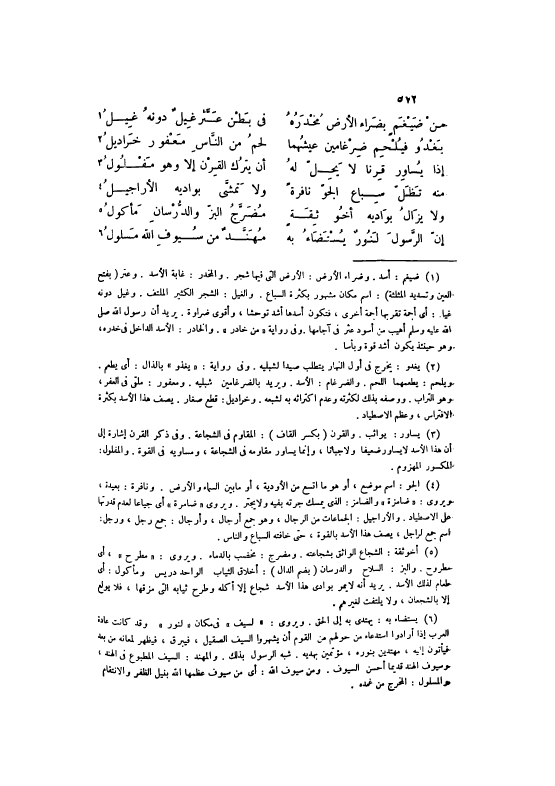 ٥٢٢
من ضَيْغَم بضَراء الأرض مُخْدَرُهُ فى بَطْن عَثَّرَ غيلٌ دونهُ غيلُ١
يَغْدُو فيُلْحِم ضِرْغامين عيشُهما لحمٌ من النَّاس مَعْفُور خَراديلُ٢
إذا يُساور قِرنا لا يَحِلُّ لهُ أن يترُك القِرْن إلا وهو مَفْلُولُ٣
منه تَظَلّ سباع الجوّ نافرةً ولا تَمشَّى بواديه الأراجيلُ٤
ولا يزالُ بواديه أخُو ثِقَةٍ مُضَرَّجُ البزّ والدُّرْسانِ مأكولُ٥
إنّ الرَّسولَ لَنُورٌ يُسْتَضَاءُ به مُهَنَّدٌ من سُيوف الله مَسلول٦
(١) ضيغم : أسد . وضراء الأرض : الأرض التى فيها شجر . والمخدر : غابة الأسد . وعثر ( بفتح
العين وتسديد المثلثة ) : اسم مكان مشهور بكثرة السباع . والغيل : الشجر الكثير الملتف . وغيل دونه
غيل : أى أجمة تقربها أجمة أخرى ، فتكون أسدها أشد توحشا ، وأقوى ضراوة . يريد أن رسول الله صلى
الله عليه وسلم أهيب من أسود عثر فى آجامها . وفى رواية « من خادر » . والخادر : الأسد الداخل فى خدره ،
وهو حينئذ يكون أشد قوة وبأسا .
(٢) يغدو : يخرج فى أول النهار يتطلب صيدا لشبليه . وفى رواية : « يغذو » بالذال : أى يطعم .
ويلحم : يطعمهما اللحم . والضرغام : الأسد . ويريد بالضرغامين شبليه . ومعفور : ملقى فى العفر ،
وهو التراب . ووصفه بذلك لكثرته وعدم اكتراثه به لشبعه . وخراديل : قطع صغار . يصف هذا الأسد بكثرة
الافتراس ، وعظم الاصطياد .
(٣) يساور : يواثب . والقرن ( بكسر القاف ) : المقاوم فى الشجاعة . وفى ذكر القرن إشارة إلى
أن هذا الأسد لايساور ضعيفا ولاجبانا ، وإنما يساور مقاومه فى الشجاعة ، ومساويه فى القوة . والمفلول :
المكسور المهزوم .
(٤) الجو : اسم موضع ، أو هو ما اتسع من الأودية ، أو مابين السماء والأرض . ونافرة : بعيدة ،
ويروى : « ضامزة » والضامز : الذى يمسك جرته بفيه ولايجتر . ويروى « ضامرة » أى جياعا لعدم قدرتها
على الاصطياد . والأراجيل : الجماعات من الرجال ، وهو جمع أرجال ، وأرجال : جمع رجل ، ورجل :
اسم جمع لراجل ، يصف هذا الأسد بالقوة ، حتى خافته السباع والناس .
(٥) أخوثقة : الشجاع الواثق بشجاعته . ومضرج : مخضب بالدماء . ويروى : « مطرح » ، أى
مطروح . والبز : السلاح والدرسان ( بضم الدال ) : أخلاق الثياب الواحد دريس ومأكول : أى
طعام لذلك الأسد . يريد أنه لايمر بوادى هذا الأسد شجاع إلا أكله وطرح ثيابه التى مزقها ، فلا يولع
إلا بالشجعان ، ولا يلتفت لغيرهم .
(٦) يستضاء به : يهتدى به إلى الحق . ويروى : « لسيف » فى مكان « لنور » وقد كانت عادة
العرب إذا أرادوا استدعاء من حولهم من القوم أن يشهروا السيف الصقيل ، فيبرق ، فيظهر لمعانه من بعد
فيأتون إليه ، مهتدين بنوره ، مؤتمين بهديه . شبه الرسول بذلك . والمهند : السيف المطبوع فى الهند ،
وسيوف الهند قديما أحسن السيوف . ومن سيوف الله : أى من سيوف عظمها الله بنيل الظفر والانتقام
والمسلول : المخرج من غمده .